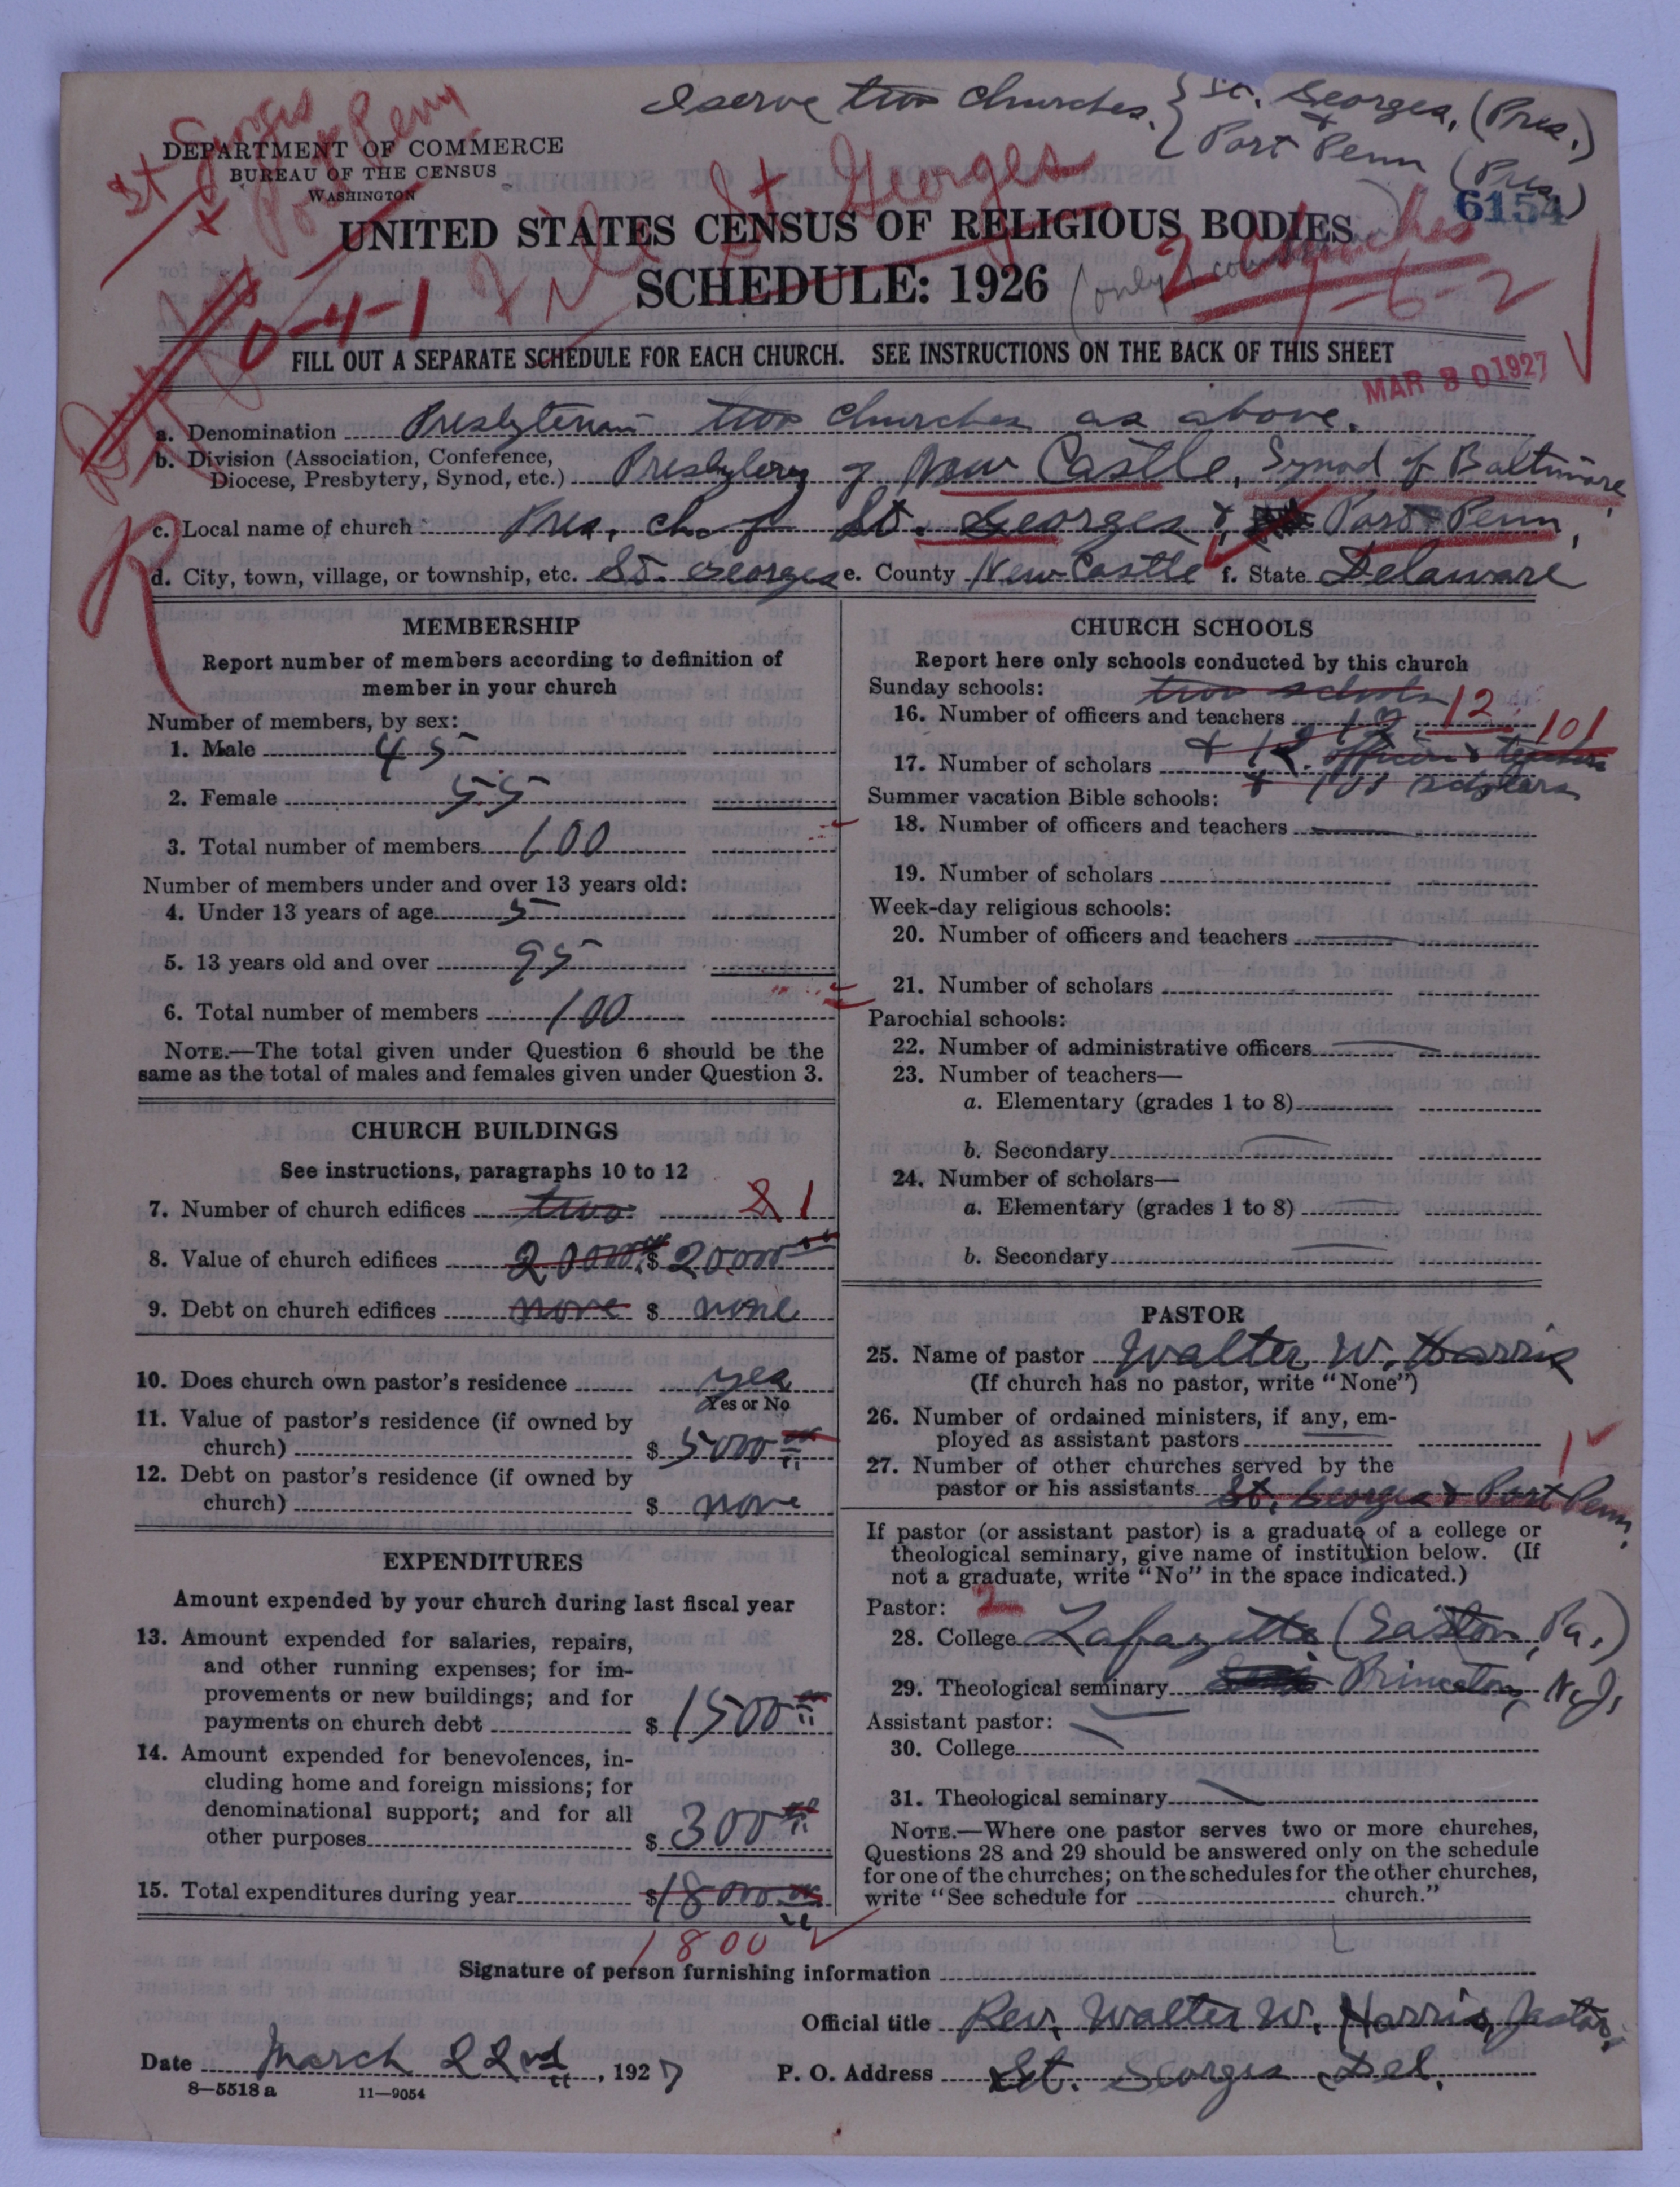 I serve two churches. { St. Georges, (Pres.)
& Port Penn (Pres.)
St Georges
& Port Penn
DEPARTMENT OF COMMERCE
BUREAU OF THE CENSUS
WASHINGTON
St. Georges
6154
UNITED STATES CENSUS OF RELIGIOUS BODIES
2 churches
SCHEDULE: 1926
(only
1-6-2
0-4-1
FILL OUT A SEPARATE SCHEDULE FOR EACH CHURCH. SEE INSTRUCTIONS ON THE BACK OF THIS SHEET
MAR 30 1927
a. Denomination Presbyterian two churches as above.
b. Division (Association, Conference, Diocese, Presbytery, Synod, etc.) Presbytery of New Castle, Synod of Baltimore,
c. Local name of church Pres. ch. of St. Georges & Port Penn,
d. City, town, village, or township, etc. St. Georges e. County New Castle f. State Delaware
MEMBERSHIP
Report number of members according to definition of
member in your church
Number of members, by sex:
1. Male 45
2. Female 55
3. Total number of members 100
Number of members under and over 13 years old:
4. Under 13 years of age 5
5. 13 years old and over 95
6. Total number of members 100
NOTE.—The total given under Question 6 should be the
same as the total of males and females given under Question 3.
CHURCH BUILDINGS
See instructions, paragraphs 10 to 12
7. Number of church edifices two 2 1
8. Value of church edifices 20000.00 $ 20000.00
9. Debt on church edifices none $ none
10. Does church own pastor's residence yes
Yes or No
11. Value of pastor's residence (if owned by
church) $ 5000.00
12. Debt on pastor's residence (if owned by
church) $ none
EXPENDITURES
Amount expended by your church during last fiscal year
13. Amount expended for salaries, repairs,
and other running expenses; for im-
provements or new buildings; and for
payments on church debt $ 1500.00
14. Amount expended for benevolences, in-
cluding home and foreign missions; for
denominational support; and for all
other purposes $ 300.00
15. Total expenditures during year $ 18000.00
1800
CHURCH SCHOOLS
Report here only schools conducted by this church
Sunday schools: two schools
16. Number of officers and teachers 12 12 101
17. Number of scholars + 12 officers & teachers
+ 101 scholars
Summer vacation Bible schools:
18. Number of officers and teachers
19. Number of scholars
Week-day religious schools:
20. Number of officers and teachers
21. Number of scholars
Parochial schools:
22. Number of administrative officers
23. Number of teachers—
a. Elementary (grades 1 to 8)
b. Secondary
24. Number of scholars—
a. Elementary (grades 1 to 8)
b. Secondary
PASTOR
25. Name of pastor Walter W. Harris
(If church has no pastor, write "None")
26. Number of ordained ministers, if any, em-
ployed as assistant pastors
27. Number of other churches served by the 1
pastor or his assistants St. Georges & Port Penn,
If pastor (or assistant pastor) is a graduate of a college or
theological seminary, give name of institution below. (If
not a graduate, write "No" in the space indicated.)
Pastor: 2
28. College Lafayette (Easton, Pa.)
29. Theological seminary Princeton, N.J.
Assistant pastor:
30. College
31. Theological seminary
NOTE.—Where one pastor serves two or more churches,
Questions 28 and 29 should be answered only on the schedule
for one of the churches; on the schedules for the other churches,
write "See schedule for church."
Signature of person furnishing information
Official title Rev. Walter W. Harris, Pastor,
Date March 22nd, 1927 P. O. Address St. Georges Del.
8—5518 a 11—9054